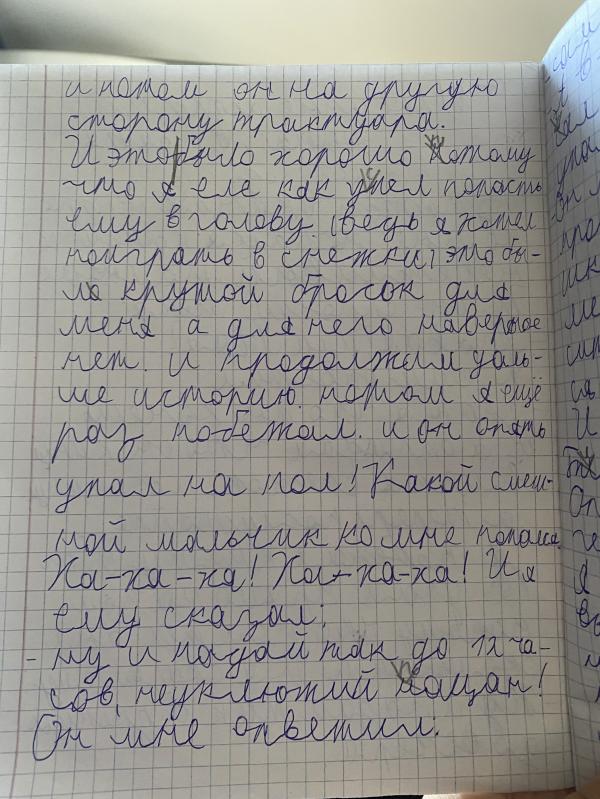 и потом он на другую
сторону трактуара.
И это было хорошо потому
что я еле как умел попасть
ему в голову (ведь я хотел
поиграть в снежки) это бы-
ло крутой бросок для
меня а для него наверное
нет. и продолжим даль-
ше историю. потом я ещё
раз побежал. и он опять
упал на пол! Какой смеш-
ной мальчик ко мне попался.
Ха-ха-ха! Ха-ха-ха! И я
ему сказал:
- ну и падай так до 12 ча-
сов, неуклюжий пацан!
Он мне ответил: